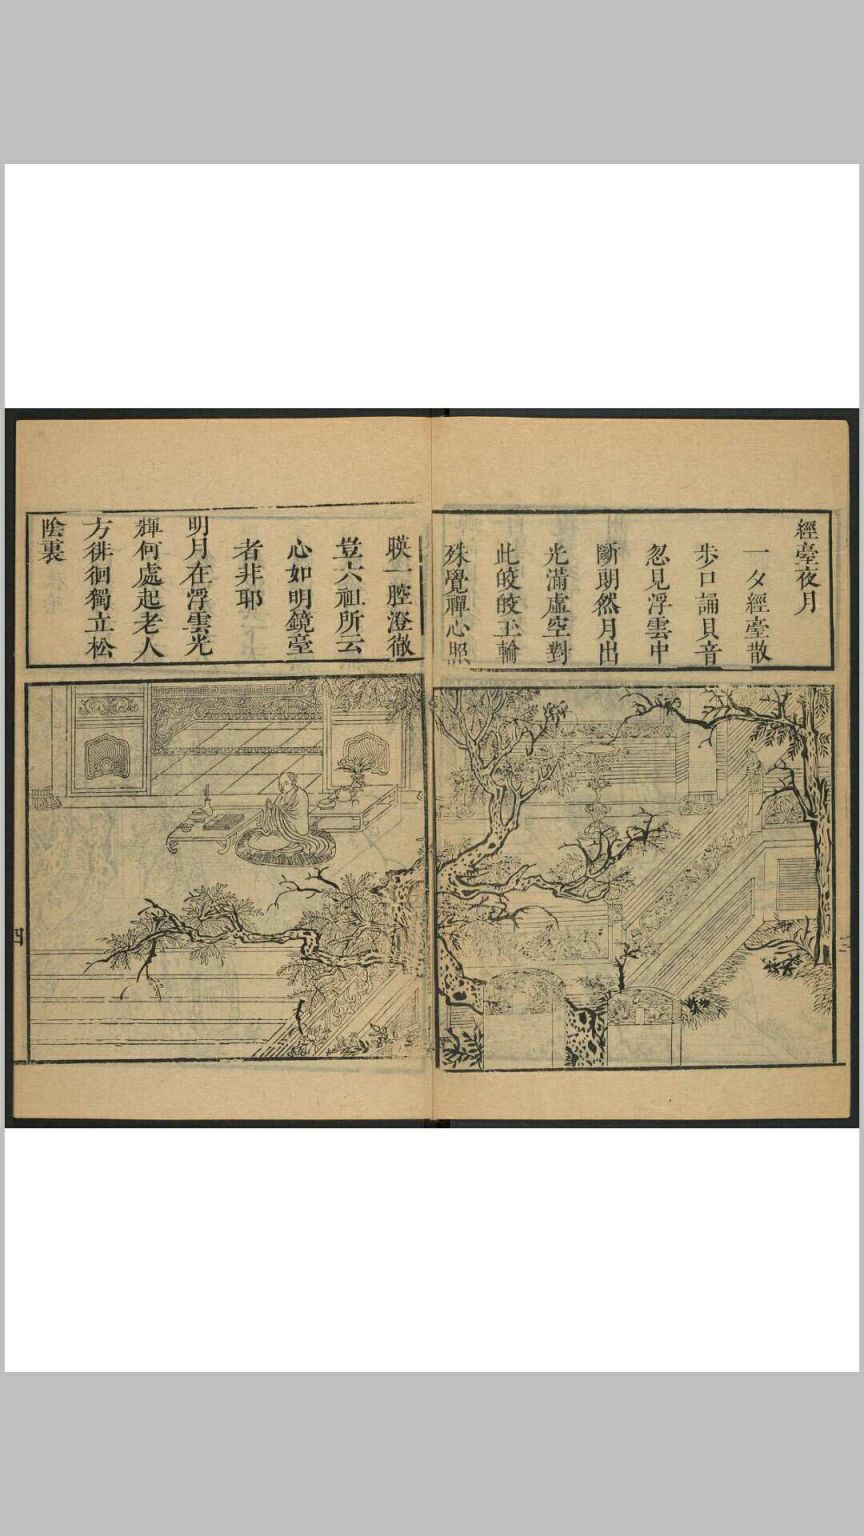 經臺夜月
一夕經臺散
步口誦貝音
忽見浮雲中
斷朗然月出
光滿虛空對
此皎皎玉輪
殊覺禪心照
暎一腔澄徹
豈六祖所云
心如明鏡臺
者非耶
明月在浮雲光
輝何處起老人
方徘徊獨立松
陰裏
四